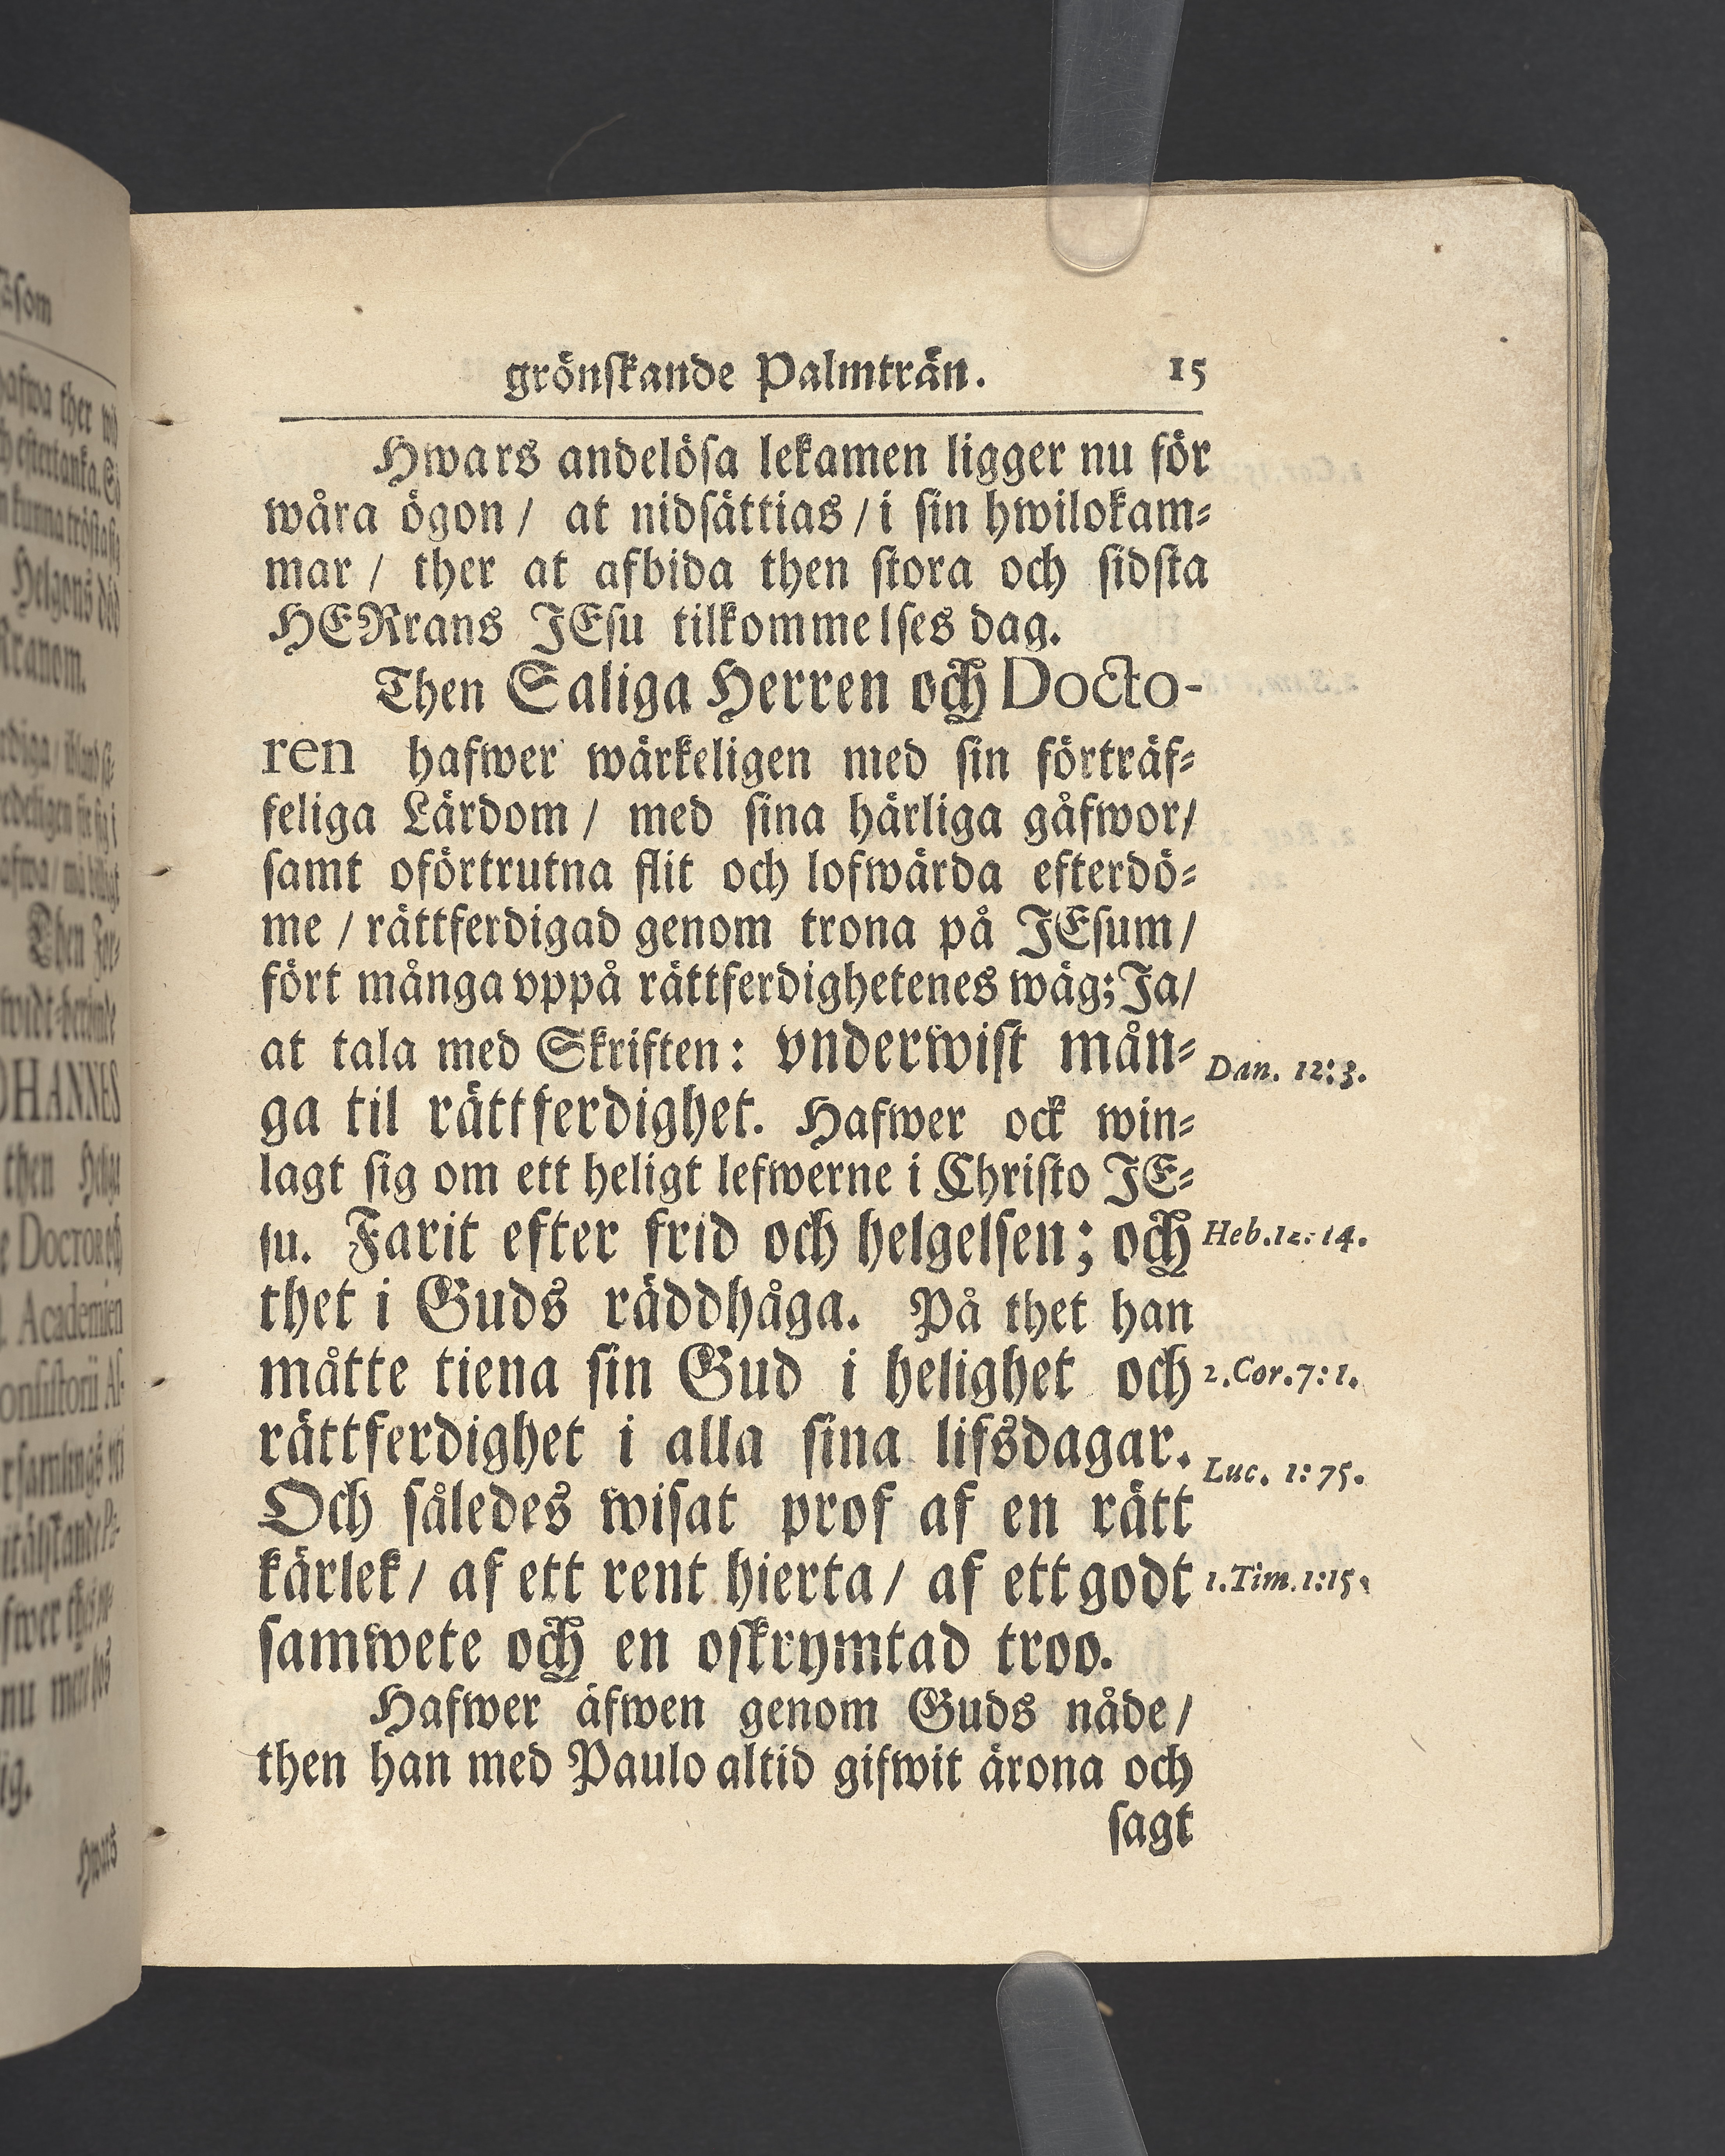 grönſkande Palmträn. 15
Hwars andelöſa lekamen ligger nu för
wåra ögon / at nidſättias / i ſin hwilokam⸗
mar / ther at afbida then ſtora och ſidſta
HERrans JEſu tilkommelſes dag.
Then Saliga Herren och Docto-
ren hafwer wärkeligen med ſin förträf⸗
feliga Lärdom / med ſina härliga gåfwor/
ſamt oförtrutna flit och lofwärda efterdö⸗
me / rättferdigad genom trona på JEſum/
fört många vppå rättferdighetenes wäg; Ja/
at tala med Skriften: vnderwiſt mån⸗
Dan. 12:3.
ga til rättferdighet. Hafwer ock win⸗
lagt ſig om ett heligt lefwerne i Chriſto JE⸗
ſu. Farit efter frid och helgelſen; och
Heb. 12: 14.
thet i Guds räddhåga. På thet han
måtte tiena ſin Gud i helighet och
2. Cor. 7: 1.
rättferdighet i alla ſina lifsdagar.
Luc. 1: 75.
Och således wiſat prof af en rätt
kärlek / af ett rent hierta / af ett godt
1. Tim. 1:15.
ſamwete och en oſkrymtad troo.
Hafwer äfwen genom Guds nåde /
then han med Paulo altid gifwit ärona och
ſagt